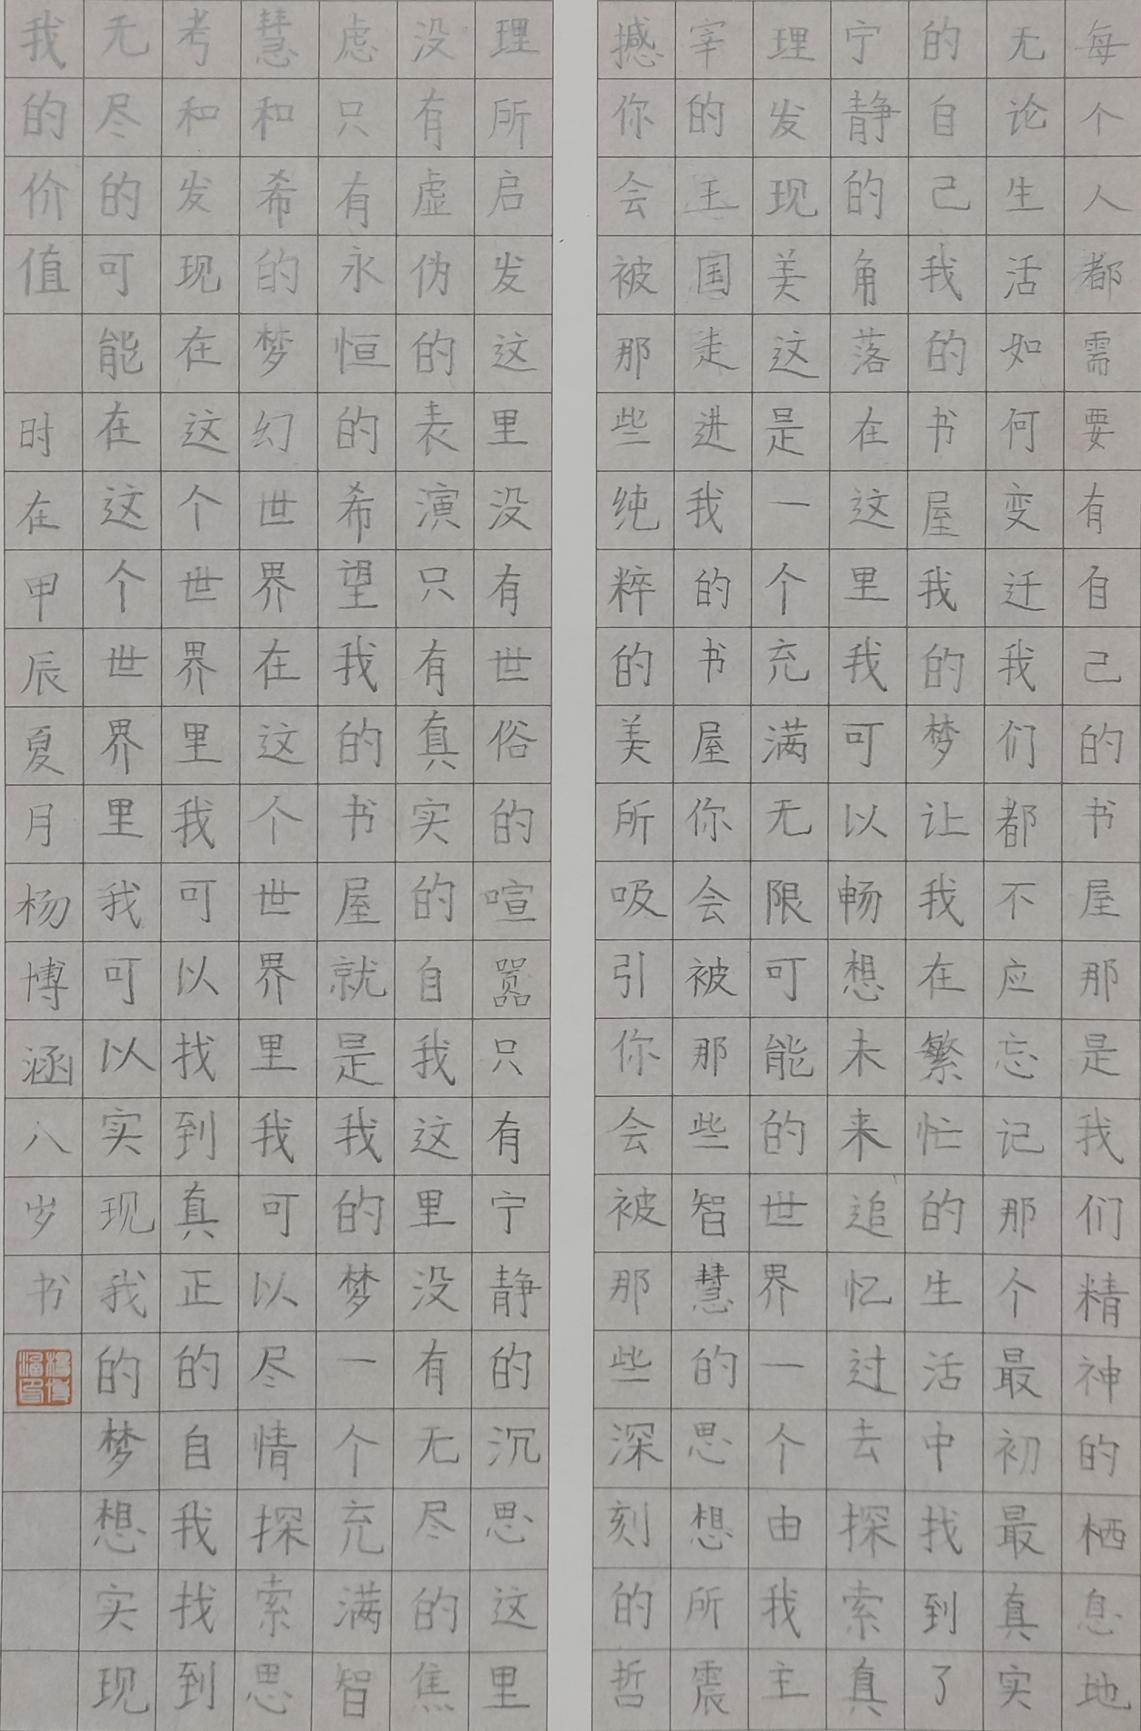 每个人都需要有自己的书屋那是我们精神的栖息地
无论生活如何变迁我们都不应忘记那个最初最真实
的自己我的书屋我的梦让我在繁忙的生活中找到了
宁静的角落在这里我可以畅想未来追忆过去探索真
理发现美这是一个充满无限可能的世界一个由我主
宰的王国走进我的书屋你会被那些智慧的思想所震
撼你会被那些纯粹的美所吸引你会被那些深刻的哲
理所启发这里没有世俗的喧嚣只有宁静的沉思这里
没有虚伪的表演只有真实的自我这里没有无尽的焦
虑只有永恒的希望我的书屋就是我的梦一个充满智
慧和希的梦幻世界在这个世界里我可以尽情探索思
考和发现在这个世界里我可以找到真正的自我找到
无尽的可能在这个世界里我可以实现我的梦想实现
我的价值 时在甲辰夏月杨博涵八岁书